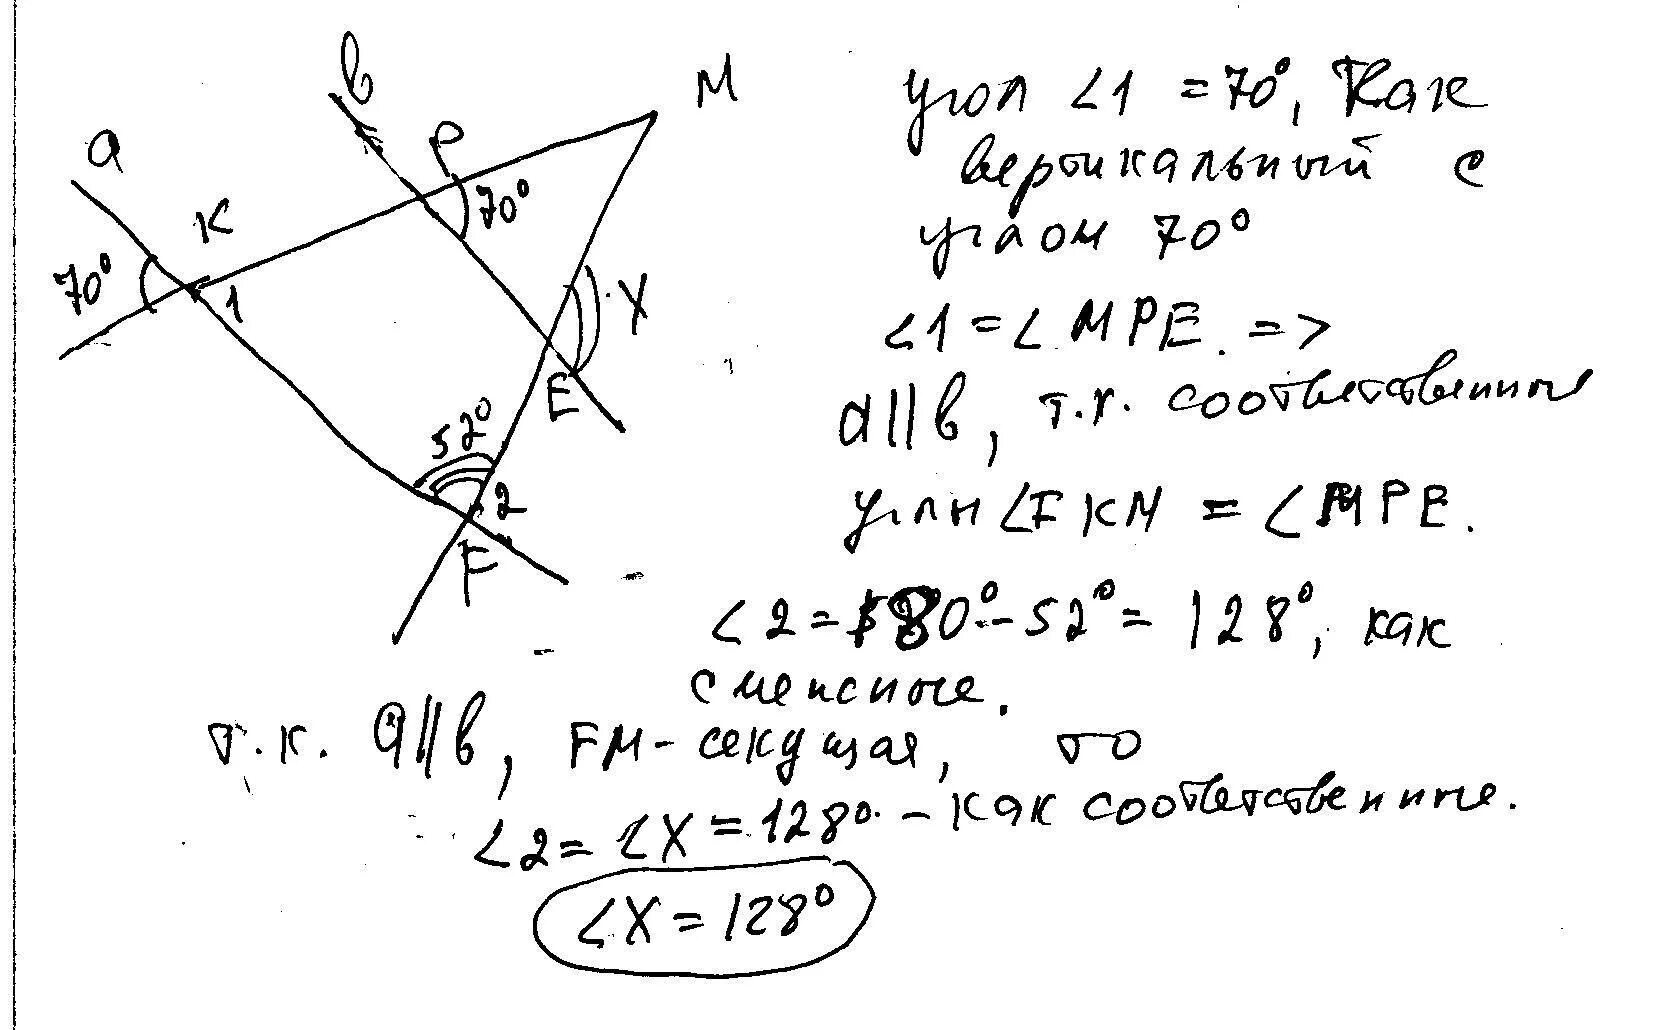 a
в
M
P
K
70°
70°
1
X
E
52°
2
F
угол ∠1 = 70°, Как
вертикальный с
углом 70°
∠1 = ∠MPE. =>
a||в, т.к. соответственные
углы ∠FKM = ∠MPE.
∠2 = 180° - 52° = 128°, как
смежные.
т.к. a||в, FM - секущая, то
∠2 = ∠X = 128° - как соответственные.
∠X = 128°